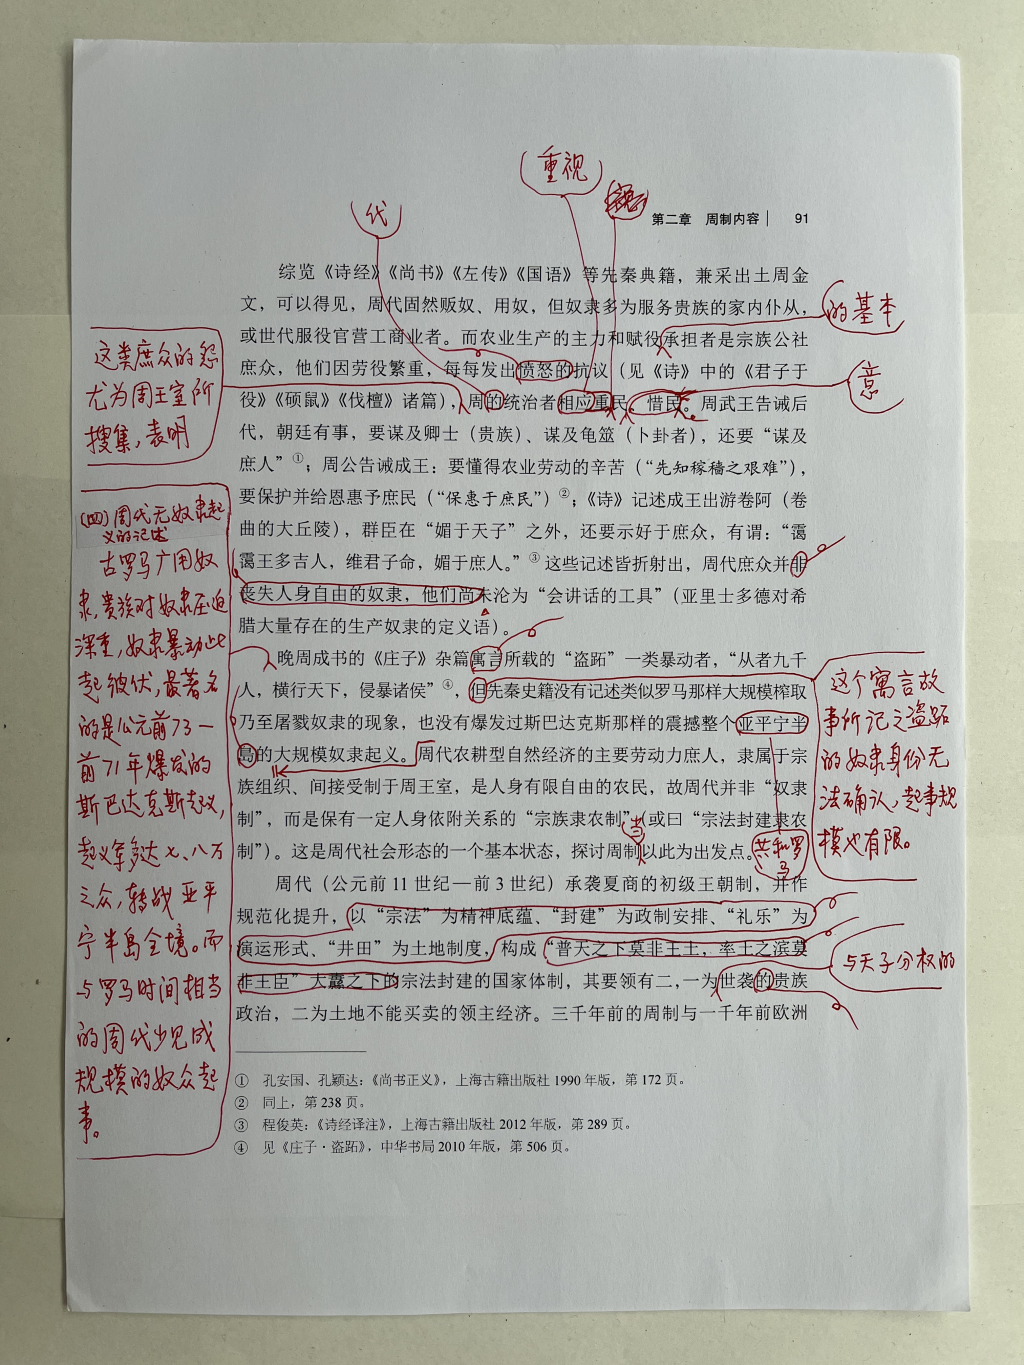 重视
代
第二章 周制内容 91
综览《诗经》《尚书》《左传》《国语》等先秦典籍，兼采出土周金
文，可以得见，周代固然贩奴、用奴，但奴隶多为服务贵族的家内仆从，
或世代服役官营工商业者。而农业生产的主力和赋役承担者是宗族公社
庶众，他们因劳役繁重，每每发出愤怒的抗议（见《诗》中的《君子于
役》《硕鼠》《伐檀》诸篇），周的统治者相应重民、惜民。周武王告诫后
代，朝廷有事，要谋及卿士（贵族）、谋及龟筮（卜卦者），还要“谋及
庶人”①；周公告诫成王：要懂得农业劳动的辛苦（“先知稼穑之艰难”），
要保护并给恩惠予庶民（“保惠于庶民”）②；《诗》记述成王出游卷阿（卷
曲的大丘陵），群臣在“媚于天子”之外，还要示好于庶众，有谓：“蔼
蔼王多吉人，维君子命，媚于庶人。”③这些记述皆折射出，周代庶众并非
丧失人身自由的奴隶，他们尚未沦为“会讲话的工具”（亚里士多德对希
腊大量存在的生产奴隶的定义语）。
晚周成书的《庄子》杂篇寓言所载的“盗跖”一类暴动者，“从者九千
人，横行天下，侵暴诸侯”④，但先秦史籍没有记述类似罗马那样大规模榨取
乃至屠戮奴隶的现象，也没有爆发过斯巴达克斯那样的震撼整个亚平宁半
岛的大规模奴隶起义。周代农耕型自然经济的主要劳动力庶人，隶属于宗
族组织、间接受制于周王室，是人身有限自由的农民，故周代并非“奴隶
制”，而是保有一定人身依附关系的“宗族隶农制”（或曰“宗法封建隶农
制”）。这是周代社会形态的一个基本状态，探讨周制以此为出发点。
周代（公元前 11 世纪—前 3 世纪）承袭夏商的初级王朝制，并作
规范化提升，以“宗法”为精神底蕴、“封建”为政制安排、“礼乐”为
演运形式、“井田”为土地制度，构成“普天之下莫非王土，率土之滨莫
非王臣”大纛之下的宗法封建的国家体制，其要领有二，一为世袭的贵族
政治，二为土地不能买卖的领主经济。三千年前的周制与一千年前欧洲
① 孔安国、孔颖达：《尚书正义》，上海古籍出版社 1990 年版，第 172 页。
② 同上，第 238 页。
③ 程俊英：《诗经译注》，上海古籍出版社 2012 年版，第 289 页。
④ 见《庄子·盗跖》，中华书局 2010 年版，第 506 页。
这类庶众的怨
尤为周王室所
搜集，表明
(四)周代无奴隶起
义的记述
古罗马广用奴
隶，贵族对奴隶压迫
深重，奴隶暴动此
起彼伏，最著名
的是公元前73—
前71年爆发的
斯巴达克斯起义，
起义军多达七、八万
之众，转战亚平
宁半岛全境。而
与罗马时间相当
的周代少见成
规模的奴众起
事。
的基本
意
这个寓言故
事所记之盗跖
的奴隶身份无
法确认，起事规
模也有限。
当
共和罗
马
与天子分权的